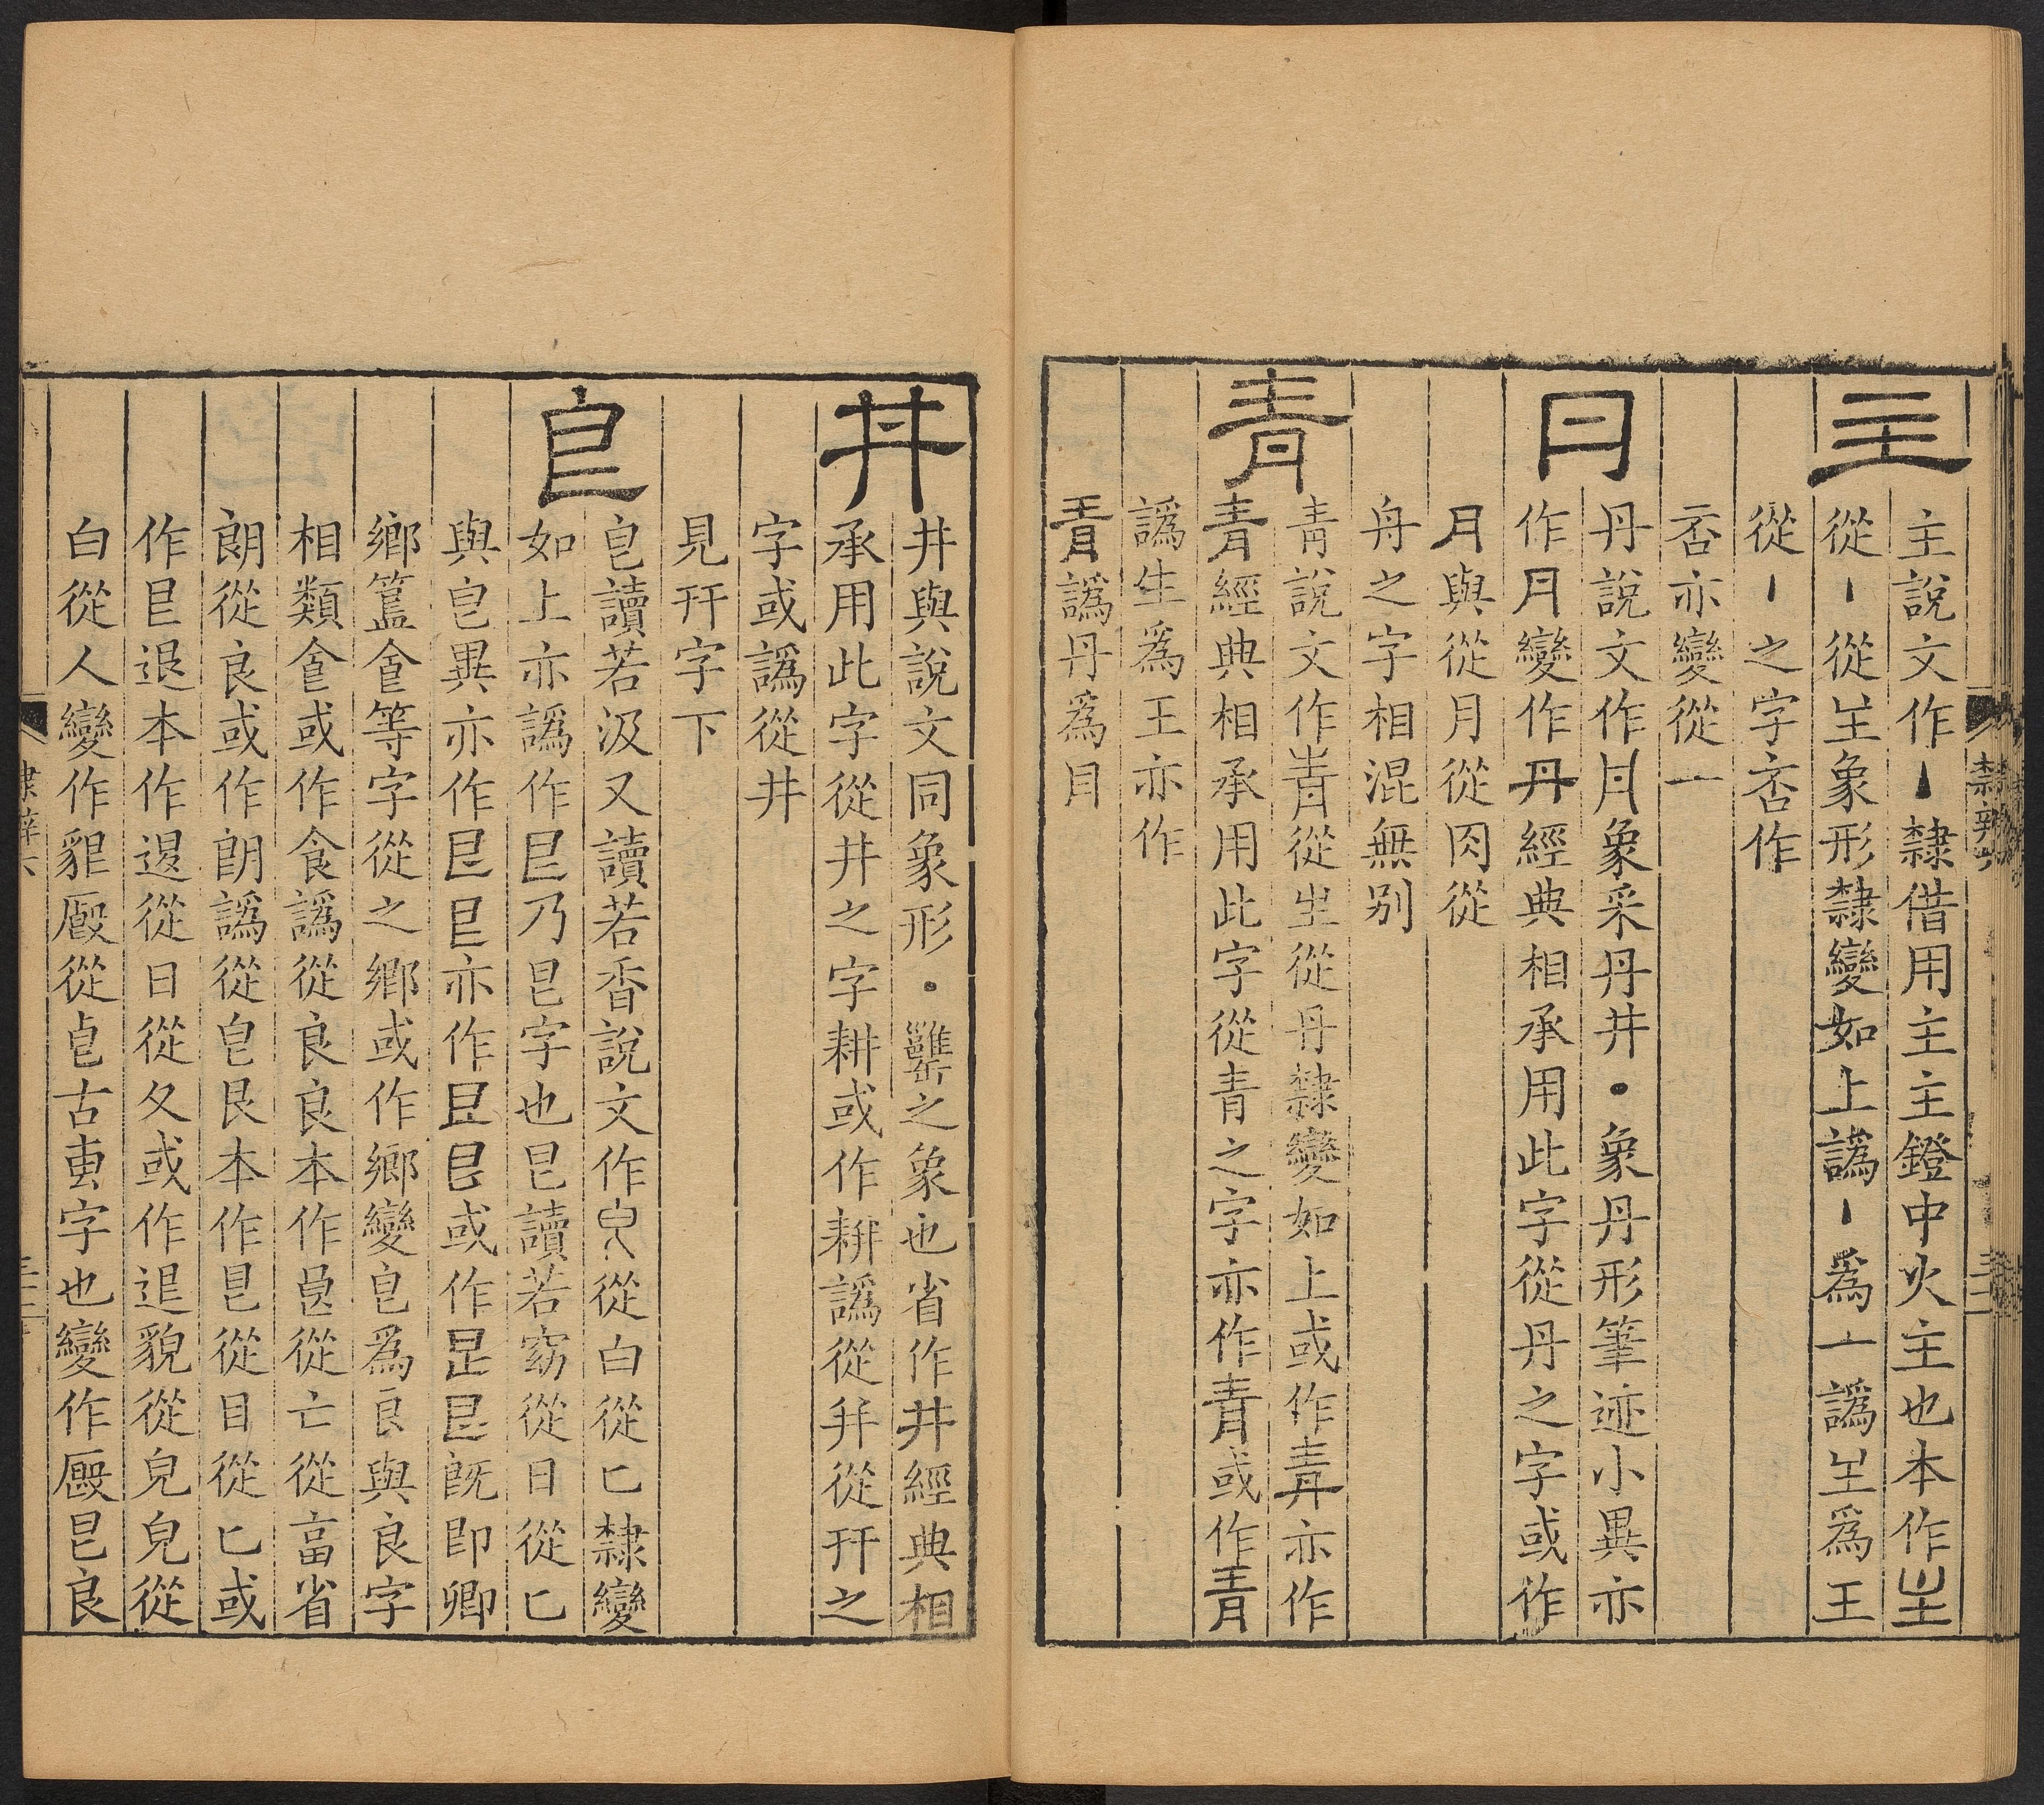 主
主說文作丶隸借用主主鐙中火主也本作
從丶從𡈼象形隸變如上譌丶爲一譌𡈼爲王
從丶之字咅作
否亦變從一
丹
丹說文作丹象采丹井丶象丹形筆迹小異亦
作月變作丹經典相承用此字從丹之字或作
月與從月從肉從
舟之字相混無别
青
青說文作靑從生從丹隸變如上或作靑亦作
青經典相承用此字從青之字亦作青或作青
譌生爲王亦作
青譌丹爲目
井
井與說文同象形丶罋之象也省作井經典相
承用此字從井之字耕或作耕譌從幷從幵之
字或譌從井
見幵字下
皀
皀讀若汲又讀若香說文作皀從白從匕隸變
如上亦譌作㫐乃㫐字也㫐讀若窈從日從匕
與皀異亦作或作旣卽卿
鄉簋食等字從之鄉或作鄉變皀爲良與良字
相類食或作食譌從良良本作從亡從畗省
朗從良或作朗譌從皀艮本作皍從目從匕或
作艮退本作復從日從夂或作退貌從皃皃從
白從人變作貇廏從皀古叀字也變作廏㫐良
隸辨六
三十一